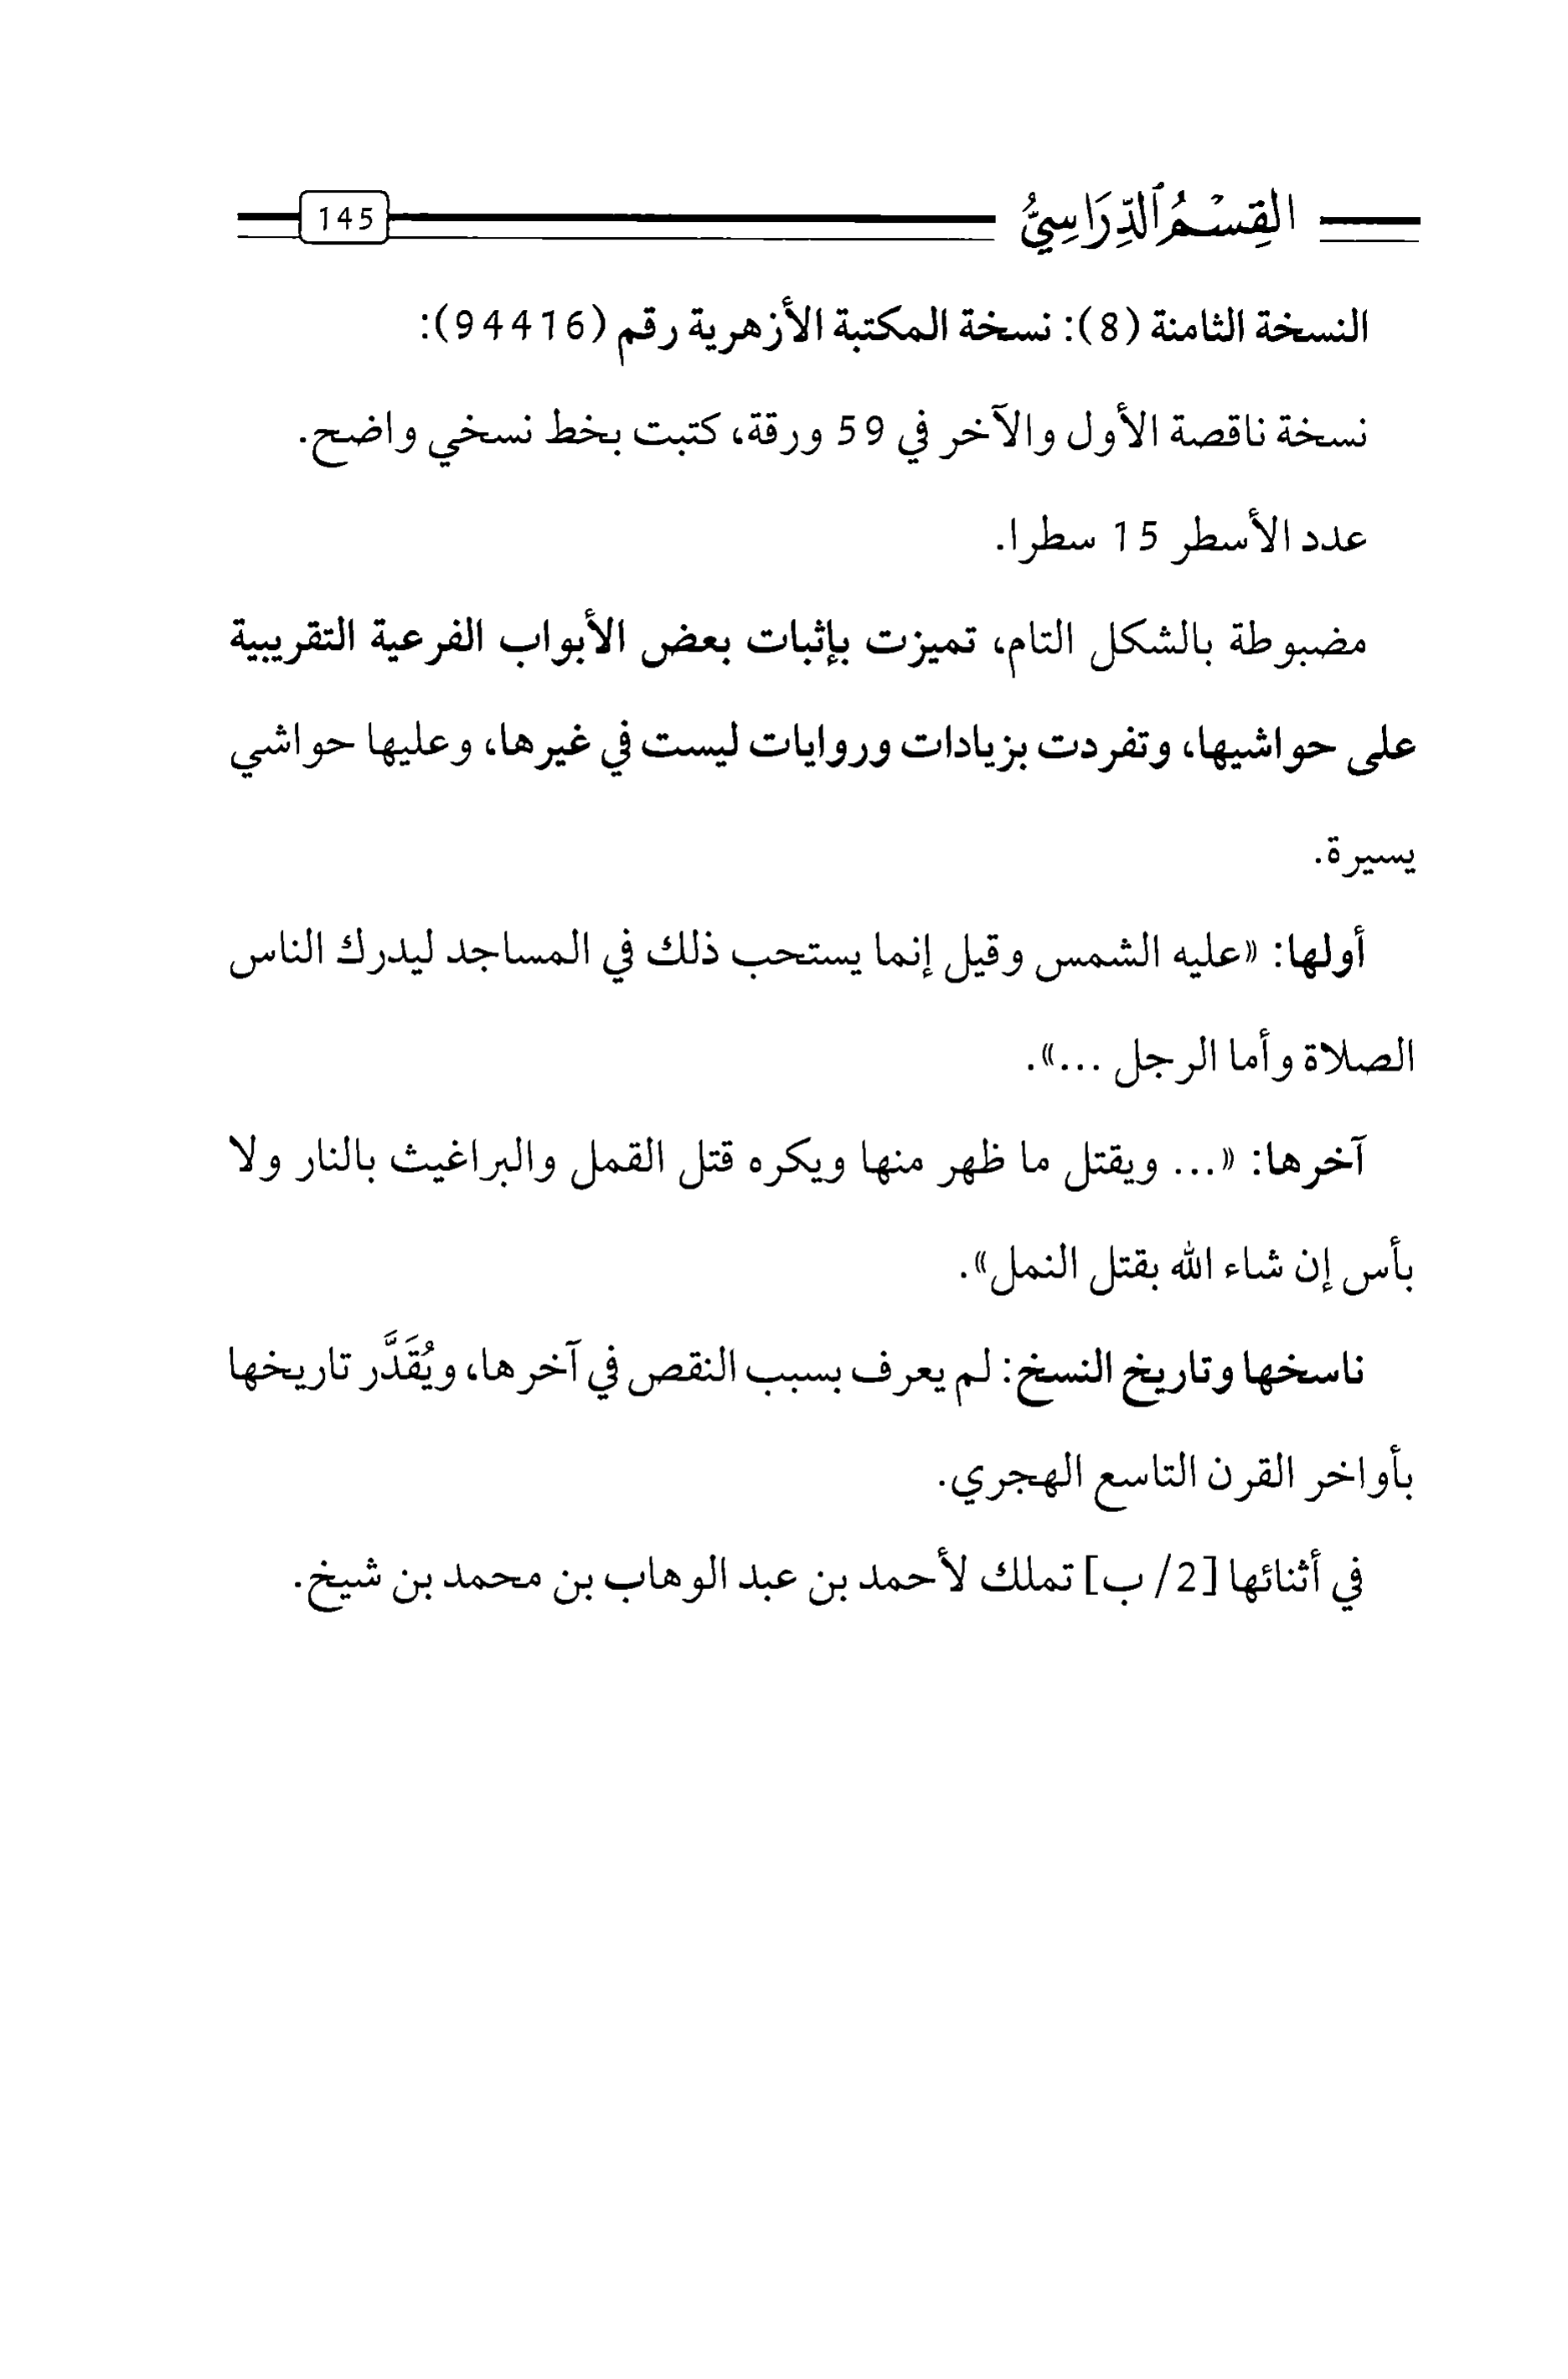 القِسْمُ ٱلدِّرَاسِيُّ 145
النسخة الثامنة (8): نسخة المكتبة الأزهرية رقم (94416):
نسخة ناقصة الأول والآخر في 59 ورقة، كتبت بخط نسخي واضح.
عدد الأسطر 15 سطرا.
مضبوطة بالشكل التام، تميزت بإثبات بعض الأبواب الفرعية التقريبية
على حواشيها، وتفردت بزيادات وروايات ليست في غيرها، وعليها حواشي
يسيرة.
أولها: «عليه الشمس وقيل إنما يستحب ذلك في المساجد ليدرك الناس
الصلاة وأما الرجل ...».
آخرها: «... ويقتل ما ظهر منها ويكره قتل القمل والبراغيث بالنار ولا
بأس إن شاء الله بقتل النمل».
ناسخها وتاريخ النسخ: لم يعرف بسبب النقص في آخرها، ويُقَدَّر تاريخها
بأواخر القرن التاسع الهجري.
في أثنائها [2/ ب] تملك لأحمد بن عبد الوهاب بن محمد بن شيخ.